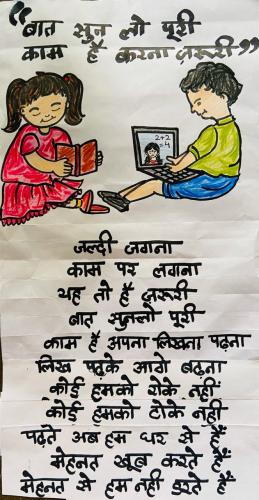 “बात सुन लो पूरी
काम है करना ज़रूरी”
2+2
=4
जल्दी जगना
काम पर लगना
यह तो है ज़रूरी
बात सुनलो पूरी
काम है अपना लिखना पढ़ना
लिख पढ़के आगे बढ़ना
कोई हमको रोके नहीं
कोई हमको टोके नहीं
पढ़ते अब हम घर से हैं
मेहनत खूब करते हैं
मेहनत से हम नहीं डरते हैं